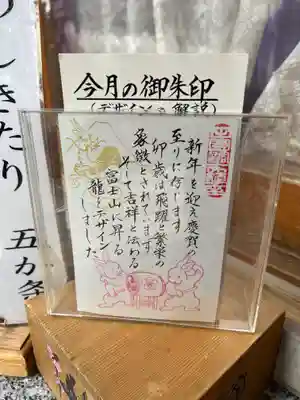 今月の御朱印
(デザインの解説)
新年を迎え慶賀の
至りに存じます
卯歳は飛躍と繁栄の
象徴とされています
そして吉祥と伝わる
富士山に昇る
龍をデザイン
しました
しきたり
五カ条